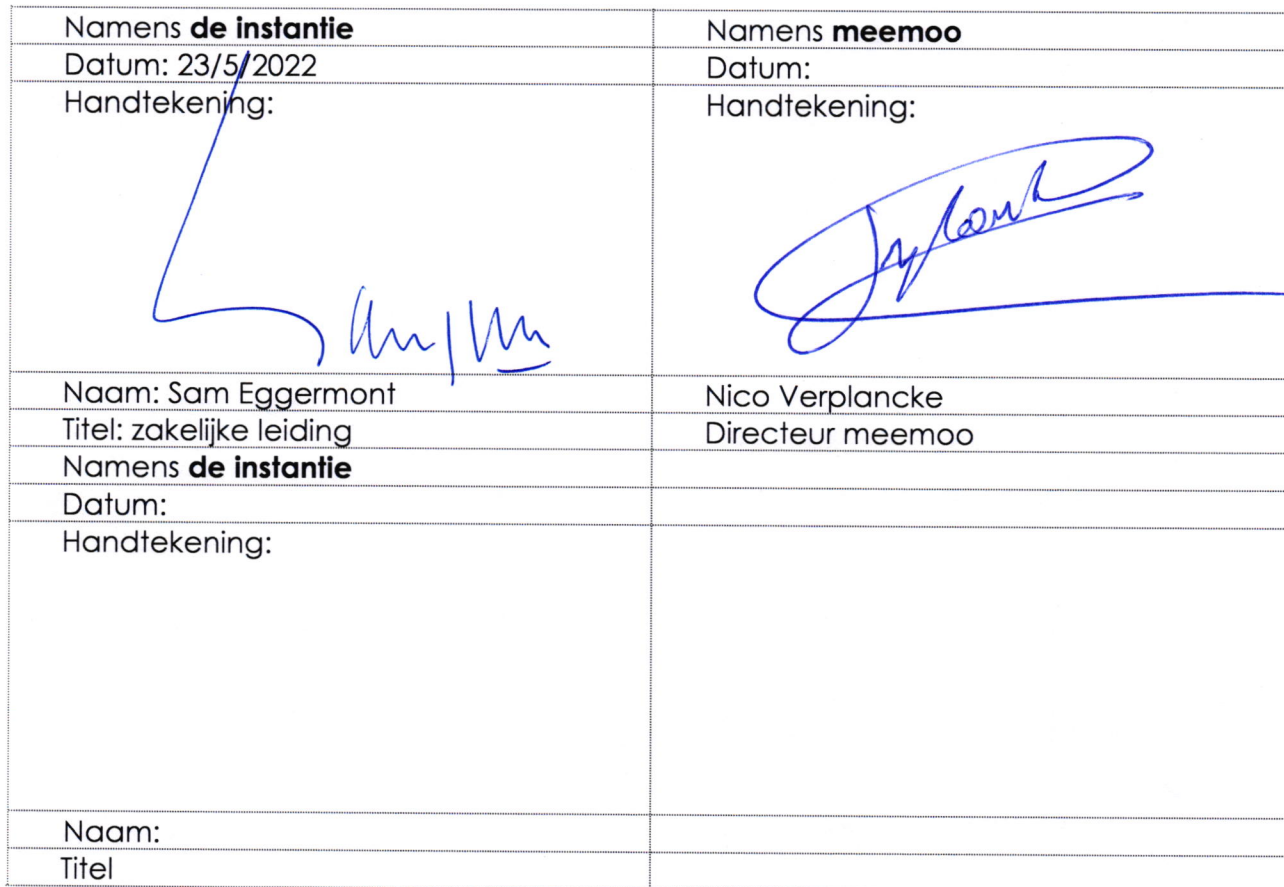 Namens de instantie
Namens meemoo
Datum: 23/5/2022
Datum:
Handtekening:
Handtekening:
Naam: Sam Eggermont
Nico Verplancke
Titel: zakelijke leiding
Directeur meemoo
Namens de instantie
Datum:
Handtekening:
Naam:
Titel